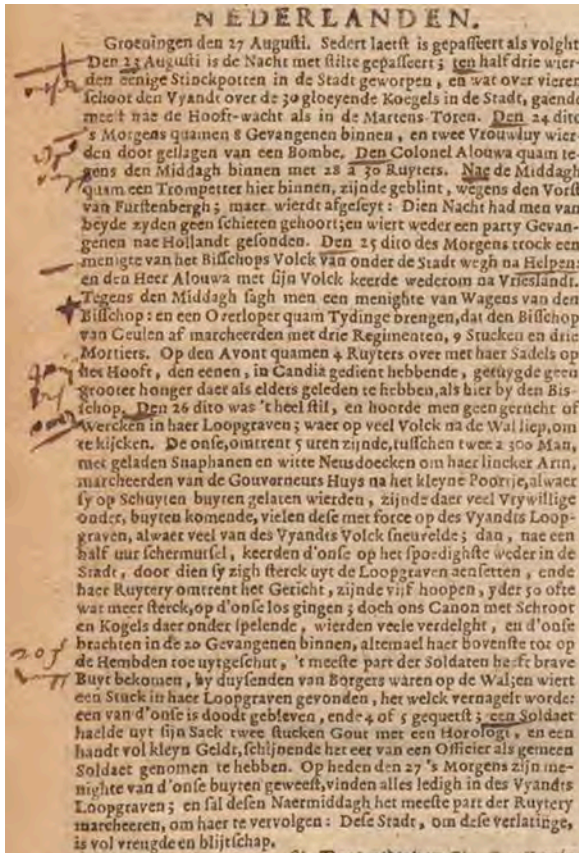 NEDERLANDEN.
Groeningen den 27 Augusti. Sedert laetst is gepasseert als volght
Den 23 Augusti is de Nacht met stilte gepasseert; ten half drie wier-
den eenige Stinckpotten in de Stadt geworpen, en wat over vieren
schoot den Vyandt over de 30 gloeyende Koegels in de Stadt, gaende
meest nae de Hooft-wacht als in de Martens Toren. Den 24 dito
's Morgens quamen 8 Gevangenen binnen, en twee Vrouwluy wier-
den door geslagen van een Bombe. Den Colonel Alouwa quam te-
gens den Middagh binnen met 28 à 30 Ruyters. Nae de Middagh
quam een Trompetter hier binnen, zijnde geblint, wegens den Vorst
van Furstenbergh; maer wierdt afgeseyt: Dien Nacht had men van
beyde zyden geen schieten gehoort; en wiert weder een party Gevan-
genen nae Hollandt gesonden. Den 25 dito des Morgens trock een
menigte van het Bisschops Volck van onder de Stadt wegh na Helpen:
en den Heer Alouwa met sijn Volck keerde wederom na Vrieslandt.
Tegens den Middagh sagh men een menighte van Wagens van den
Bisschop: en een Overloper quam Tydinge brengen, dat den Bisschop
van Ceulen af marcheerden met drie Regimenten, 9 Stucken en drie
Mortiers. Op den Avont quamen 4 Ruyters over met haer Sadels op
het Hooft, den eenen, in Candia gedient hebbende, getuygde geen
grooter honger daer als elders geleden te hebben, als hier by den Bis-
schop. Den 26 dito was 't heel stil, en hoorde men geen gerucht of
Wercken in haer Loopgraven; waer op veel Volck na de Wal liep, om
te kijcken. De onse, omtrent 5 uren zijnde, tusschen twee a 300 Man,
met geladen Snaphanen en witte Neusdoecken om haer lincker Arm,
marcheerden van de Gouverneurs Huys na het kleyne Poortje, alwaer
sy op Schuyten buyten gelaten wierden, zijnde daer veel Vrywillige
onder, buyten komende, vielen dese met force op des Vyandts Loop-
graven, alwaer veel van des Vyandts Volck sneuvelde; dan, nae een
half uur schermutsel, keerden d'onse op het spoedighste weder in de
Stadt, door dien sy zigh sterck uyt de Loopgraven aensetten, ende
haer Ruytery omtrent het Gericht, zijnde vijf hoopen, yder 50 ofte
wat meer sterck, op d'onse los gingen; doch ons Canon met Schroot
en Kogels daer onder spelende, wierden veele verdelght, en d'onse
brachten in de 20 Gevangenen binnen, altemael haer bovenste tot op
de Hembden toe uytgeschut, 't meeste part der Soldaten heeft brave
Buyt bekomen, by duysenden van Borgers waren op de Wal; en wiert
een Stuck in haer Loopgraven gevonden, het welck vernagelt worde:
een van d'onse is doodt gebleven, ende 4 of 5 gequetst; een Soldaet
haelde uyt sijn Sack twee stucken Gout met een Horologt, en een
handt vol kleyn Geldt, schijnende het eer van een Officier als gemeen
Soldaet genomen te hebben. Op heden den 27 's Morgens zijn me-
nighte van d'onse buyten geweest, vinden alles ledigh in des Vyandts
Loopgraven; en sal desen Naermiddagh het meeste part der Ruytery
marcheeren, om haer te vervolgen: Dese Stadt, om dese verlatinge,
is vol vreugde en blijtschap.
205